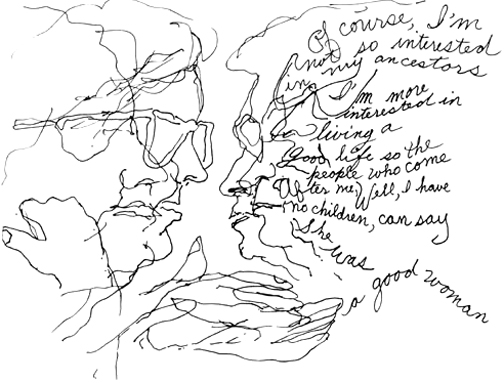 Of course, I'm
not so interested
in my ancestors
I'm more
interested in
living a
good life so the
people who come
after me, Well, I have
no children, can say
She
was
a good woman